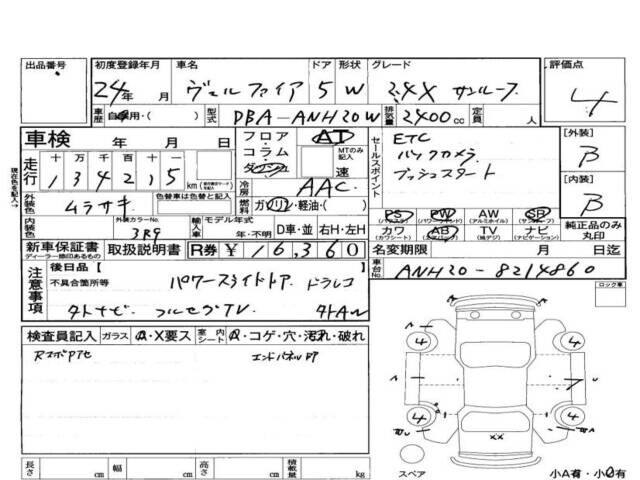 出品番号 初度登録年月 車名 ドア 形状 グレード 評価点
24年 月 ヴェルファイア 5 W 2.4X サンルーフ 4
車歴 自家用・( ) 型式 DBA-ANH20W 排気量 2400cc 定員 人
車検 年 月 日 フロア・コラム・ダッシュ AT MTのみ記入 速
セールスポイント ETC バックカメラ プッシュスタート
[外装] B
[内装] B
現在色を記入→
走行 十 万 千 百 十 134215 km
冷房 AAC
外装色 ムラサキ 色替車は色替と記入 燃料 ガソリン・軽油・( )
内装色 外装カラーNo. 3R9 輸入車 モデル年式 年・不明 D車・並 右H・左H
PS (パワステ) PW (パワーウインド) AW (アルミホイル) SR (サンルーフ)
カワ (カワシート) AB (エアバッグ) TV (地デジ) ナビ (ナビゲーション)
純正品のみ丸印
新車保証書 ディーラー捺印あるもの 取扱説明書 R券 ¥16,360
名変期限 月 日迄
車台No. ANH20-8214860
注意事項 後日品 不具合箇所等 パワースライドドア ドラレコ
外ナビ フルセグTV 外AW
ロック車
検査員記入 ガラス A・X要ス 室内シート Q・コゲ・穴・汚れ・破れ
エンドパネル凹
4 4
7
4 4
XX
スペア 小A有・小O有
長さ cm 幅 cm 高さ cm 積載量 kg